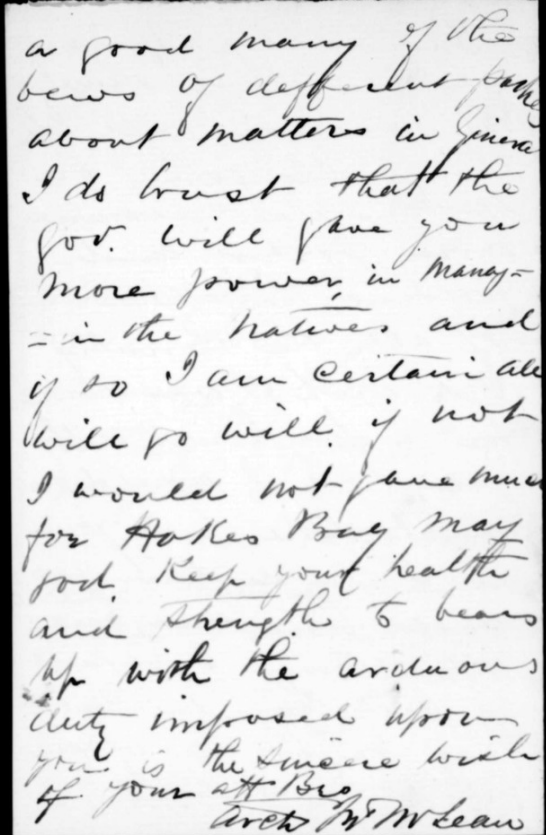 a good many of the
bews of defferent partys
about matters in Ginera
I do trust that the
gov. will gave you
more power in manag-
=in the natives and
if so I am certain all
will go will if not
I would not gave much
for Hakes Bay may
god Keep your health
and strength to bear
up with the arduous
duty imposed upon
you is the sincere wish
of your att Bro
Archd McLean